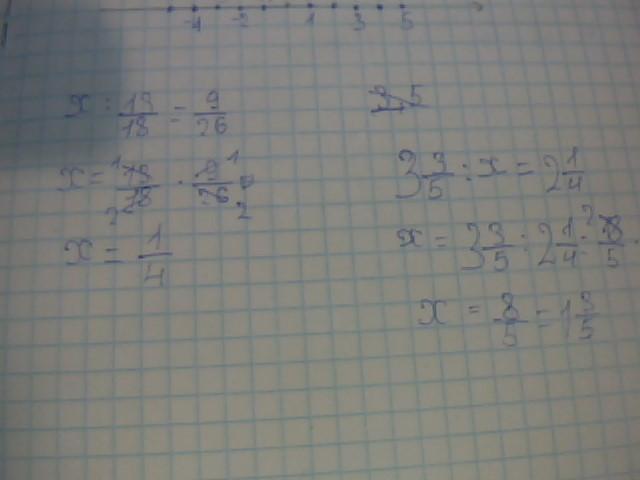 -4 -2 1 3 5
x : 13/18 = 9/26
x = 13/18 · 9/26
x = 1/4
3 3/5 : x = 2 1/4
x = 3 3/5 : 2 1/4
x = 8/5 = 1 3/5